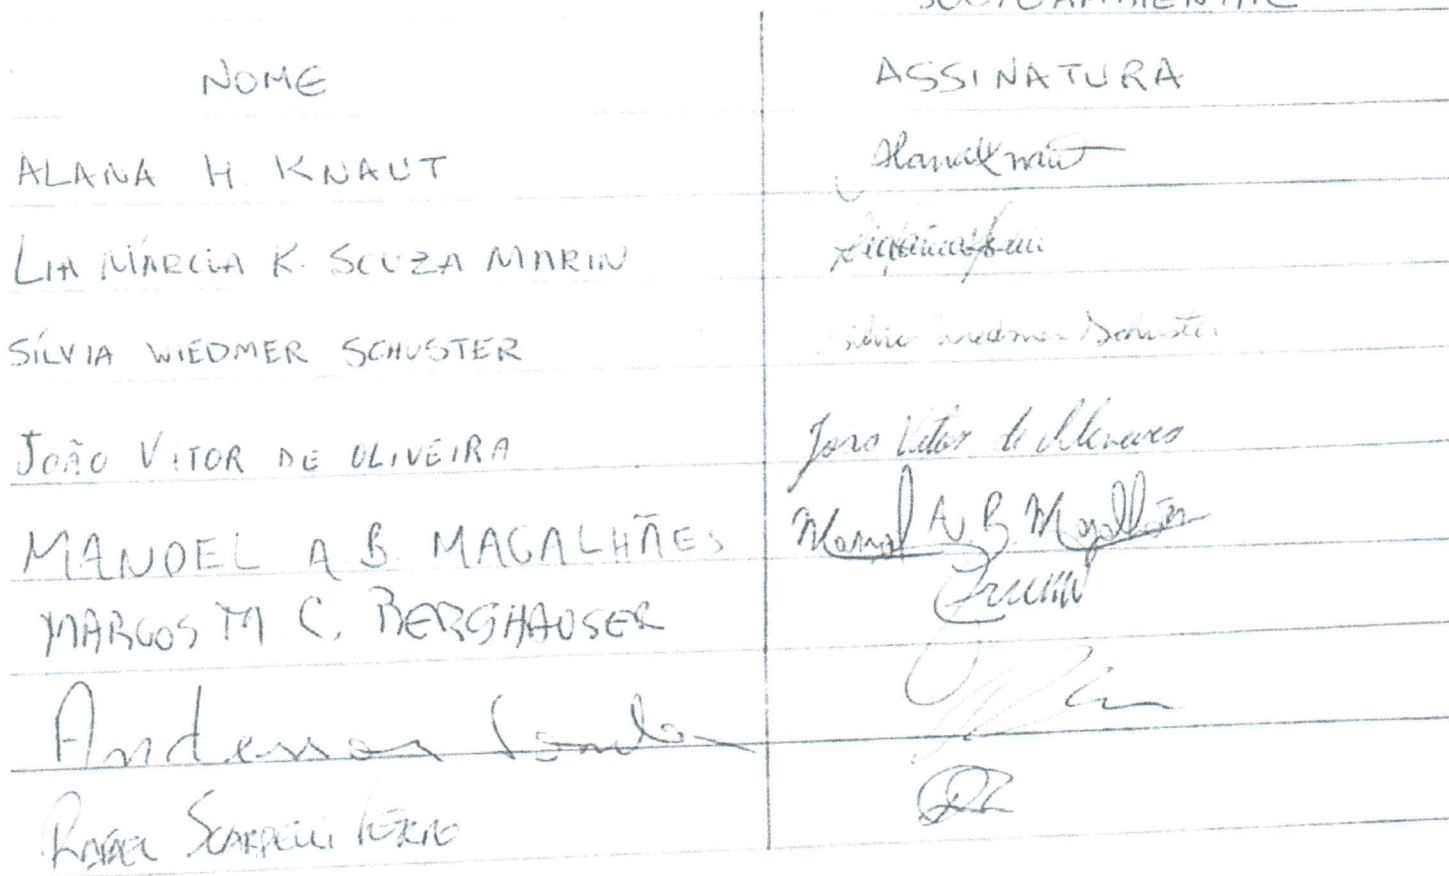 SOCIOAMBIENTAL
NOME ASSINATURA
ALANA H. KNAUT
LIA MÁRCIA K. SOUZA MARIN
SÍLVIA WIEDMER SCHUSTER Silvia Wiedmer Schuster
JOÃO VITOR DE OLIVEIRA João Vitor de
MANOEL A B. MAGALHÃES Manoel A. B. Magalhães
MARCOS M C. BERGHAUSER
Anderson
RAFAEL SCARPELLI